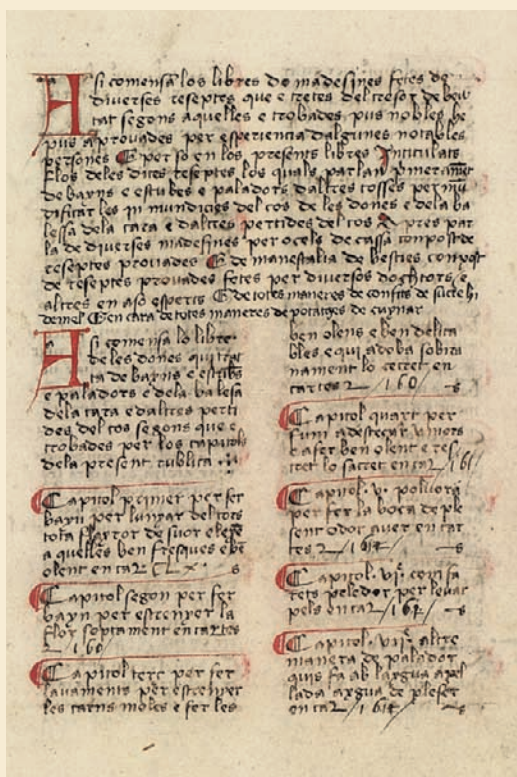 Asi comensa los libres de madesines fetes de
diverses reseptes que e tretes del tresor de beu
tat segons aquelles e trobades pus nobles he
pus aprovades per esperiencia dalgunes notables
persones E per so en los presents libres Intitulats
Flos de les dites reseptes los quals parlan primerament
de bayns e estubes e paladors daltres cosses per mu
dificar les in mundicies del cos de les dones e dela ba
lessa dela cara e daltres pertides del cos A pres par
la de diverses madesines per ocels de cassa conpost de
reseptes provades E de manescalia de besties conpost
de reseptes provades fetes per diversos doghtors e
altres en aso esperts E de totes maneres de confits de sucre hi
de mel E en cara de totes maneres de potatges de cuynar
Asi comensa lo libre
de les dones qui trac
ta de bayns e estubes
e paladors e dela balesa
dela cara e daltres perti
des del cos segons que e
trobades per los capitols
dela present tublica
Capitol primer per fer
bayn per lunyar del cors
tota flartor de suor e lexe
a quelles ben fresques e be
olent en car CLX s
Capitol segon per fer
bayn per estrenyer la
flor soptament en cartes
/ 160
Capitol terc per fer
lavaments per estrenyer
les carns moles e fer les
ben olens e ben delica
bles e qui adoba sobira
nament lo cecret en
cartes / 160 / s
Capitol quart per
fum a destecar umors
e afer ben olent e res
lo sacret en car / 161
Capitol v polvora
per fer la boca de ple
sent odor aver en car
tes / 164 / s
Capitol vj com fa
rets pelador per levar
pels en car / 164 / s
Capitol vij altre
manera de palador
quis fa ab laygua apel
lada aygua de pleser
en car / 164 / s